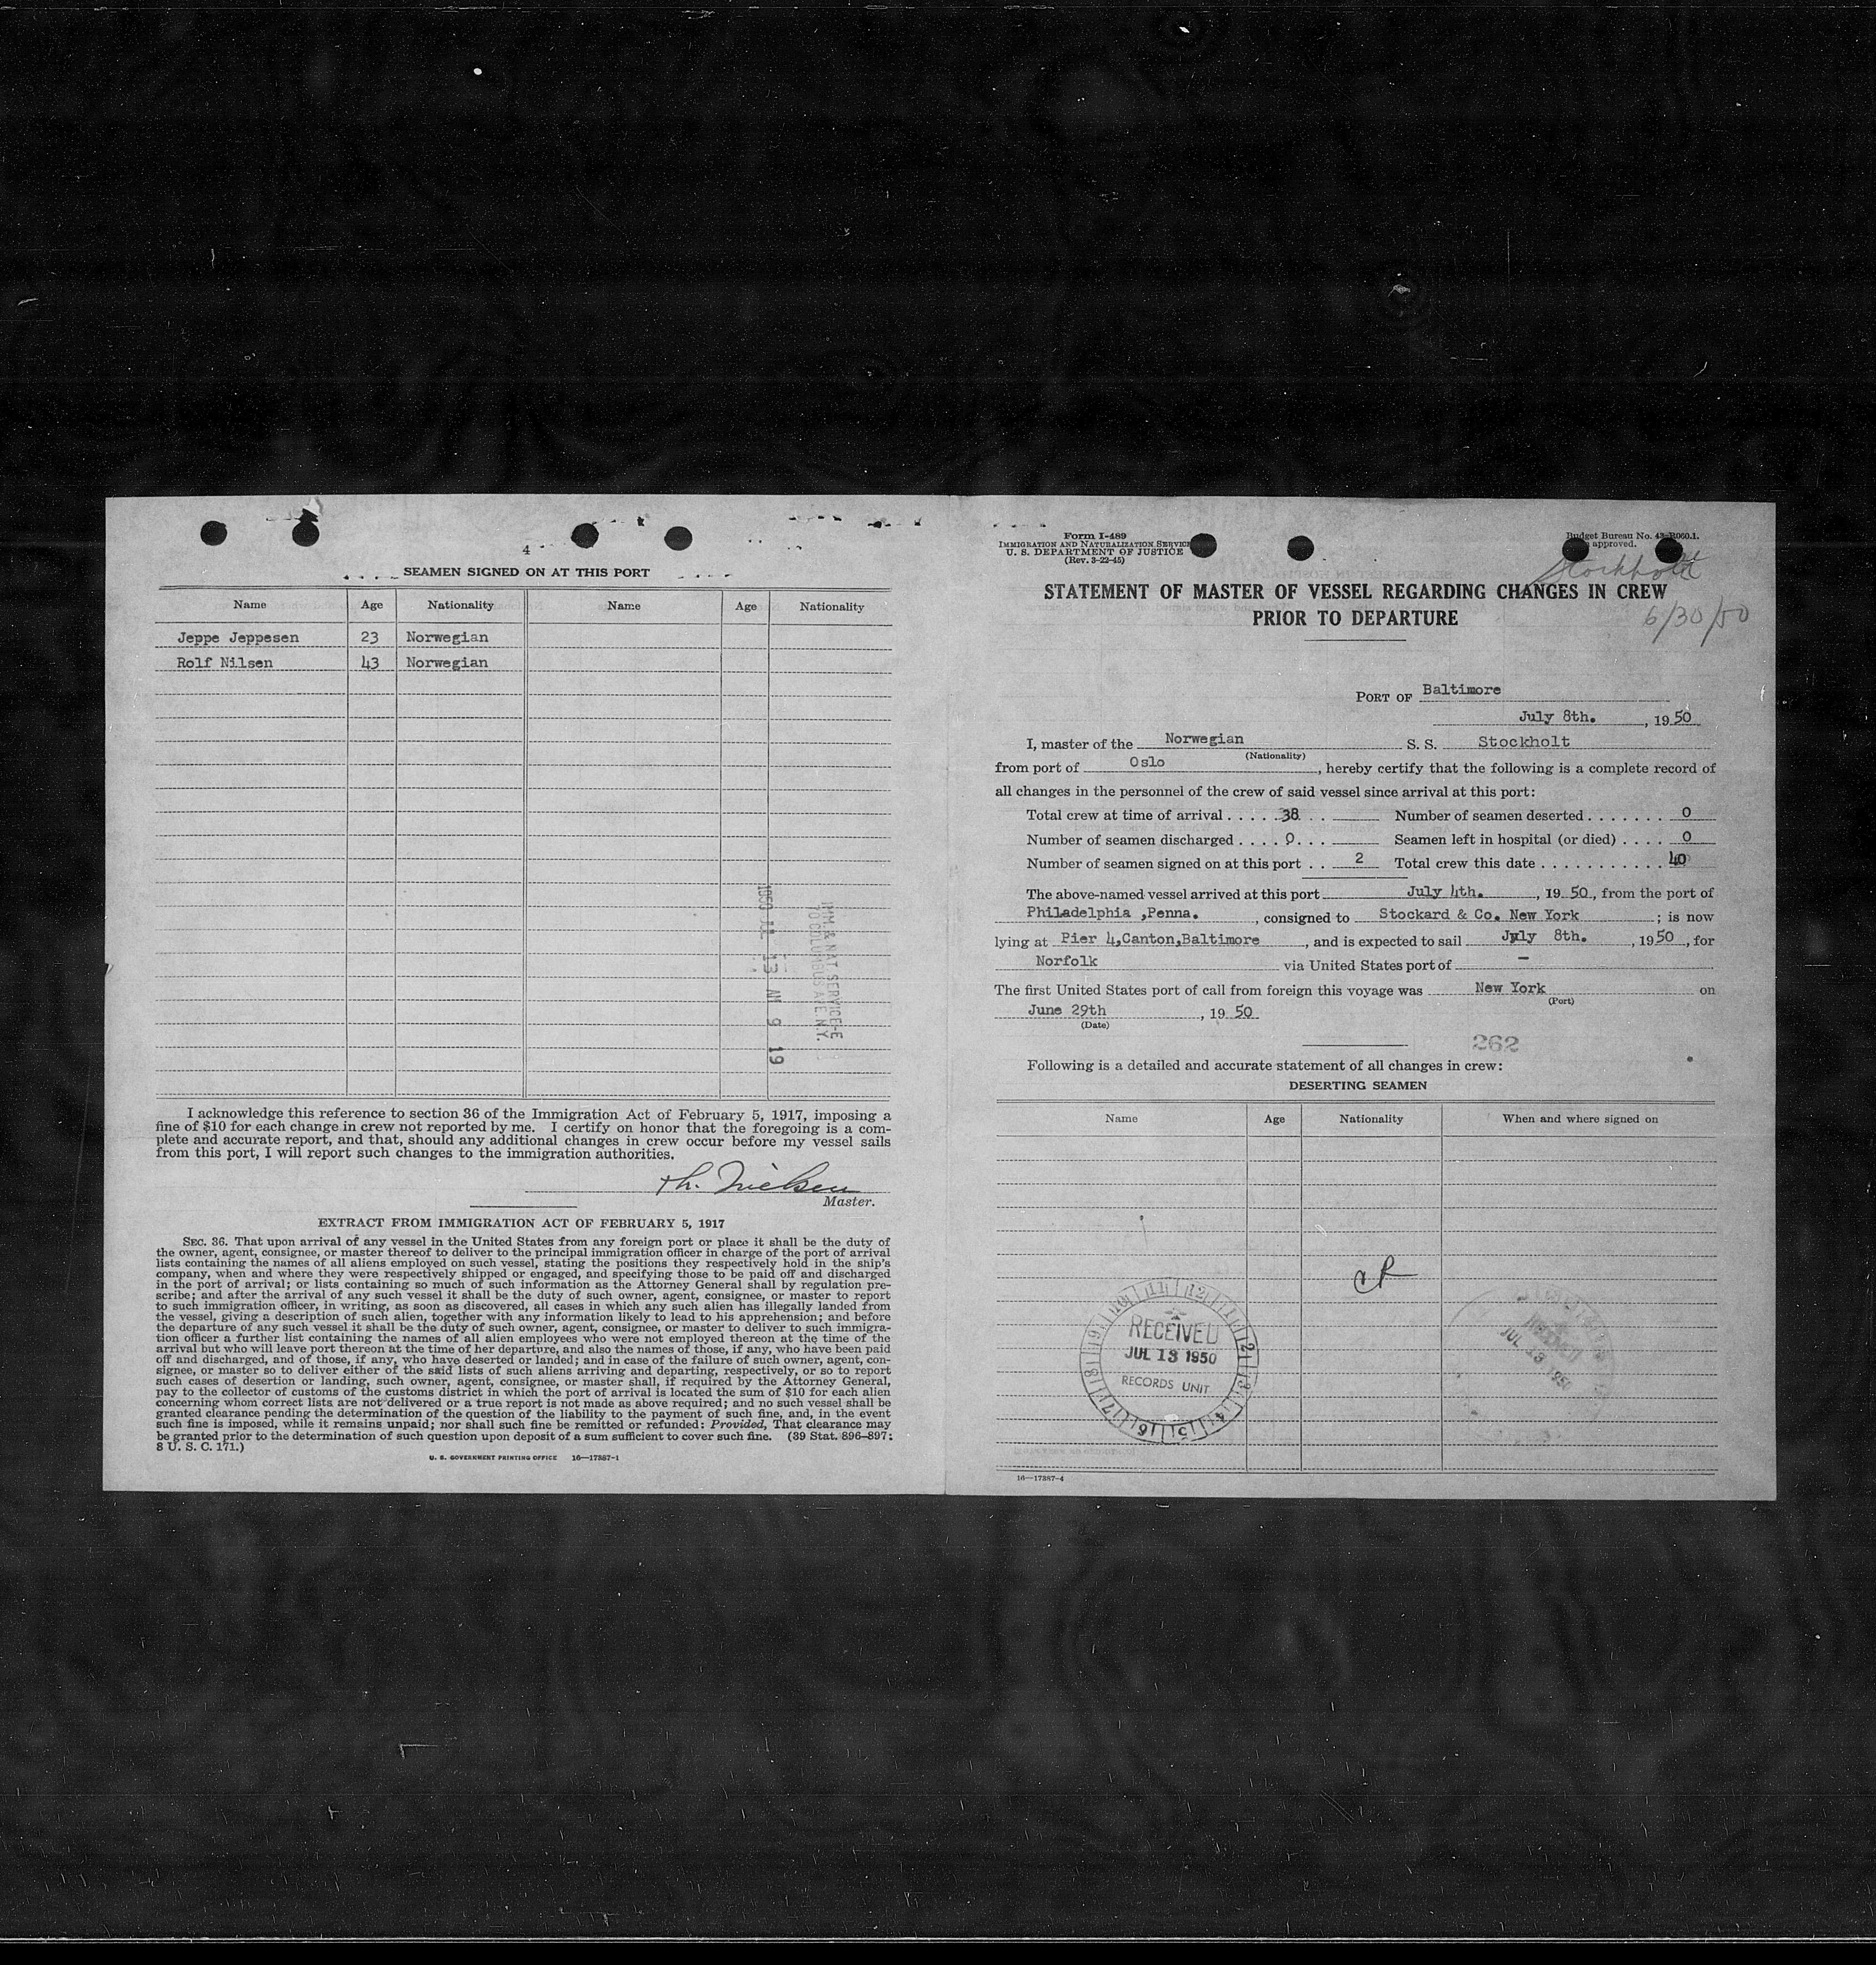 4
SEAMEN SIGNED ON AT THIS PORT
Name Age Nationality Name Age Nationality
Jeppe Jeppesen 23 Norwegian
Rolf Nilsen 43 Norwegian
IMM & NAT SERVICE-E
70 COLUMBUS AVE. N.Y.
1950 JUL 13 AM 9 19
I acknowledge this reference to section 36 of the Immigration Act of February 5, 1917, imposing a
fine of $10 for each change in crew not reported by me. I certify on honor that the foregoing is a com-
plete and accurate report, and that, should any additional changes in crew occur before my vessel sails
from this port, I will report such changes to the immigration authorities.
Th. Nielsen
Master.
EXTRACT FROM IMMIGRATION ACT OF FEBRUARY 5, 1917
SEC. 36. That upon arrival of any vessel in the United States from any foreign port or place it shall be the duty of
the owner, agent, consignee, or master thereof to deliver to the principal immigration officer in charge of the port of arrival
lists containing the names of all aliens employed on such vessel, stating the positions they respectively hold in the ship's
company, when and where they were respectively shipped or engaged, and specifying those to be paid off and discharged
in the port of arrival; or lists containing so much of such information as the Attorney General shall by regulation pre-
scribe; and after the arrival of any such vessel it shall be the duty of such owner, agent, consignee, or master to report
to such immigration officer, in writing, as soon as discovered, all cases in which any such alien has illegally landed from
the vessel, giving a description of such alien, together with any information likely to lead to his apprehension; and before
the departure of any such vessel it shall be the duty of such owner, agent, consignee, or master to deliver to such immigra-
tion officer a further list containing the names of all alien employees who were not employed thereon at the time of the
arrival but who will leave port thereon at the time of her departure, and also the names of those, if any, who have been paid
off and discharged, and of those, if any, who have deserted or landed; and in case of the failure of such owner, agent, con-
signee, or master so to deliver either of the said lists of such aliens arriving and departing, respectively, or so to report
such cases of desertion or landing, such owner, agent, consignee, or master shall, if required by the Attorney General,
pay to the collector of customs of the customs district in which the port of arrival is located the sum of $10 for each alien
concerning whom correct lists are not delivered or a true report is not made as above required; and no such vessel shall be
granted clearance pending the determination of the question of the liability to the payment of such fine, and, in the event
such fine is imposed, while it remains unpaid; nor shall such fine be remitted or refunded: Provided, That clearance may
be granted prior to the determination of such question upon deposit of a sum sufficient to cover such fine. (39 Stat. 896-897;
8 U. S. C. 171.)
U. S. GOVERNMENT PRINTING OFFICE 16—17387-1
Form I-489
IMMIGRATION AND NATURALIZATION SERVICE
U. S. DEPARTMENT OF JUSTICE
(Rev. 3-22-45)
Budget Bureau No. 43-R060.1.
approved.
Stockholt
6/30/50
STATEMENT OF MASTER OF VESSEL REGARDING CHANGES IN CREW
PRIOR TO DEPARTURE
PORT OF Baltimore
July 8th. , 19 50
I, master of the Norwegian S. S. Stockholt
(Nationality)
from port of Oslo , hereby certify that the following is a complete record of
all changes in the personnel of the crew of said vessel since arrival at this port:
Total crew at time of arrival . . . . 38 . . Number of seamen deserted . . . . . . . 0
Number of seamen discharged . . . . 0 . . . Seamen left in hospital (or died) . . . . 0
Number of seamen signed on at this port . . 2 Total crew this date . . . . . . . . . . . 40
The above-named vessel arrived at this port July 4th. , 19 50 , from the port of
Philadelphia ,Penna. , consigned to Stockard & Co. New York ; is now
lying at Pier 4,Canton,Baltimore , and is expected to sail July 8th. , 19 50 , for
Norfolk via United States port of —
The first United States port of call from foreign this voyage was New York on
(Port)
June 29th , 19 50
(Date)
262
Following is a detailed and accurate statement of all changes in crew:
DESERTING SEAMEN
Name Age Nationality When and where signed on
RECEIVED
JUL 13 1950
RECORDS UNIT
JUL 13 1950
16—17387-4